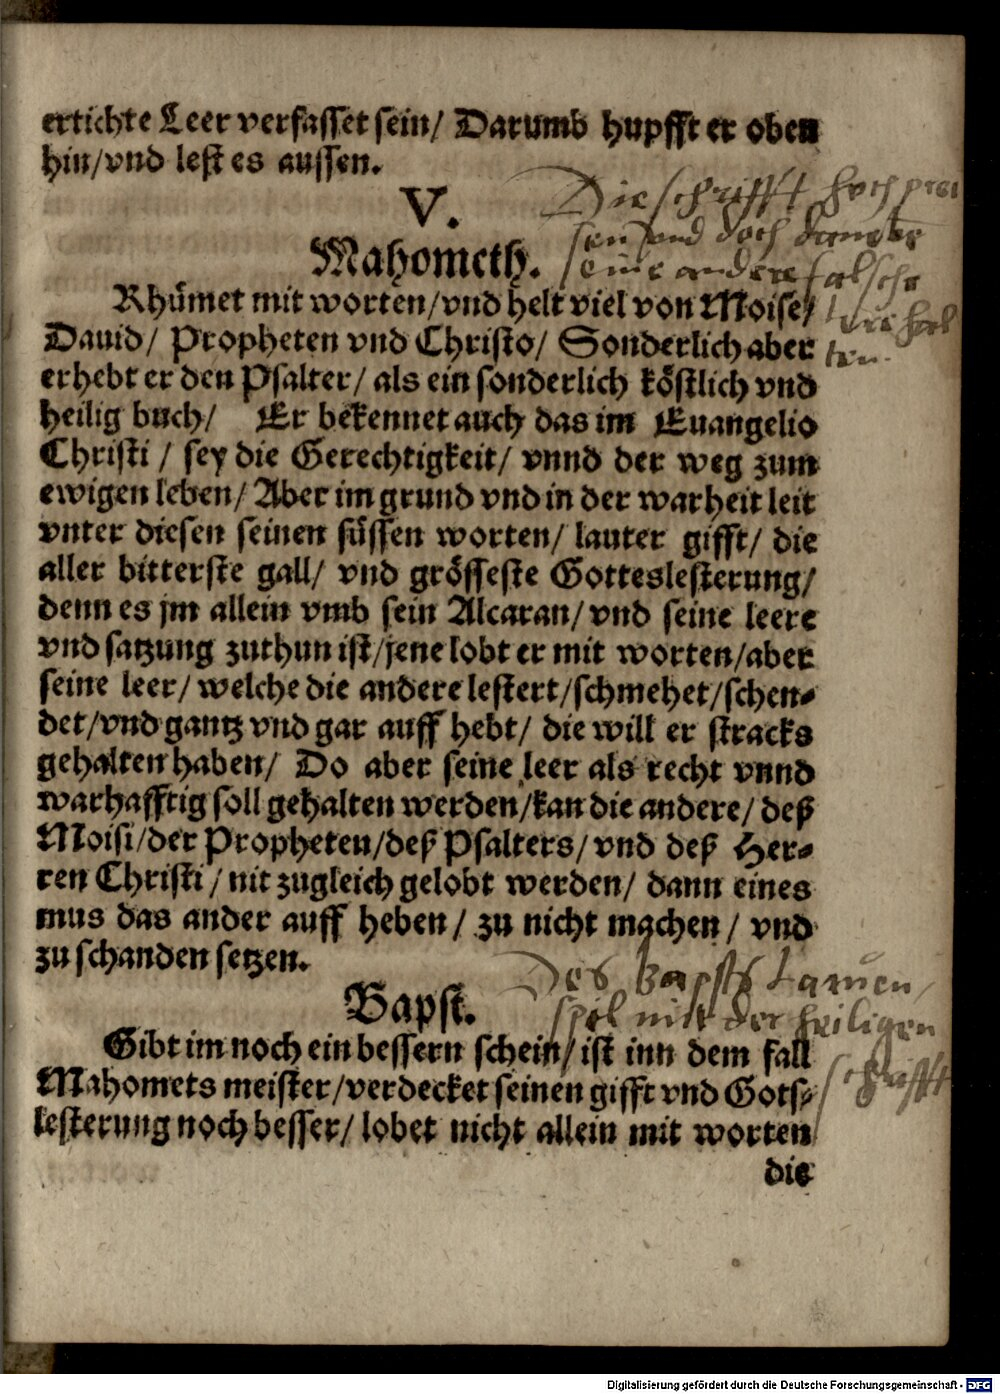 ertichte Leer verfasset sein/ Darumb hupfft er oben
hin/ vnd lest es aussen.
V.
Die schrifft hoch prei
sen vnd doch darneben
seine andere falsche
lere hal
ten.
Mahometh.
Rhümet mit worten/ vnd helt viel von Moise/
Dauid/ Propheten vnd Christo/ Sonderlich aber
erhebt er den Psalter/ als ein sonderlich köstlich vnd
heilig buch/ Er bekennet auch das im Euangelio
Christi / sey die Gerechtigkeit/ vnnd der weg zum
ewigen leben/ Aber im grund vnd in der warheit leit
vnter diesen seinen süssen worten/ lauter gifft/ die
aller bitterste gall/ vnd grösseste Gotteslesterung/
denn es jm allein vmb sein Alcaran/ vnd seine leere
vnd satzung zuthun ist/ jene lobt er mit worten/ aber
seine leer/ welche die andere lestert/ schmehet/ schen-
det/ vnd gantz vnd gar auff hebt/ die will er stracks
gehalten haben/ Do aber seine leer als recht vnnd
warhafftig soll gehalten werden/ kan die andere/ deß
Moisi/ der Propheten/ deß Psalters/ vnd deß Her-
ren Christi / nit zugleich gelobt werden/ dann eines
mus das ander auff heben / zu nicht machen / vnd
zu schanden setzen.
Des bapsts Laruen
spil mit der heiligen
schrifft
Bapst.
Gibt im noch ein bessern schein/ ist inn dem fall
Mahomets meister/ verdecket seinen gifft vnd Gots-
lesterung noch besser/ lobet nicht allein mit worten
die
Digitalisierung gefördert durch die Deutsche Forschungsgemeinschaft - DFG